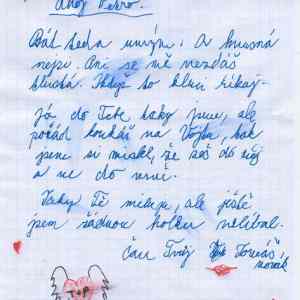 Ahoj Petro.
Psát teda umím. A hnusná
nejsi. Ani se mě nezdáš
tlustá. Když to kluci říkaj.
já do Tebe taky jsem, ale
pořád koukáš na Vojtu, tak
jsem si myslel, že seš do něj
a ne do mne.
Taky Tě miluju, ale ještě
jsem žádnou holku nelíbal.
Čau Tvůj Tomáš
T+P